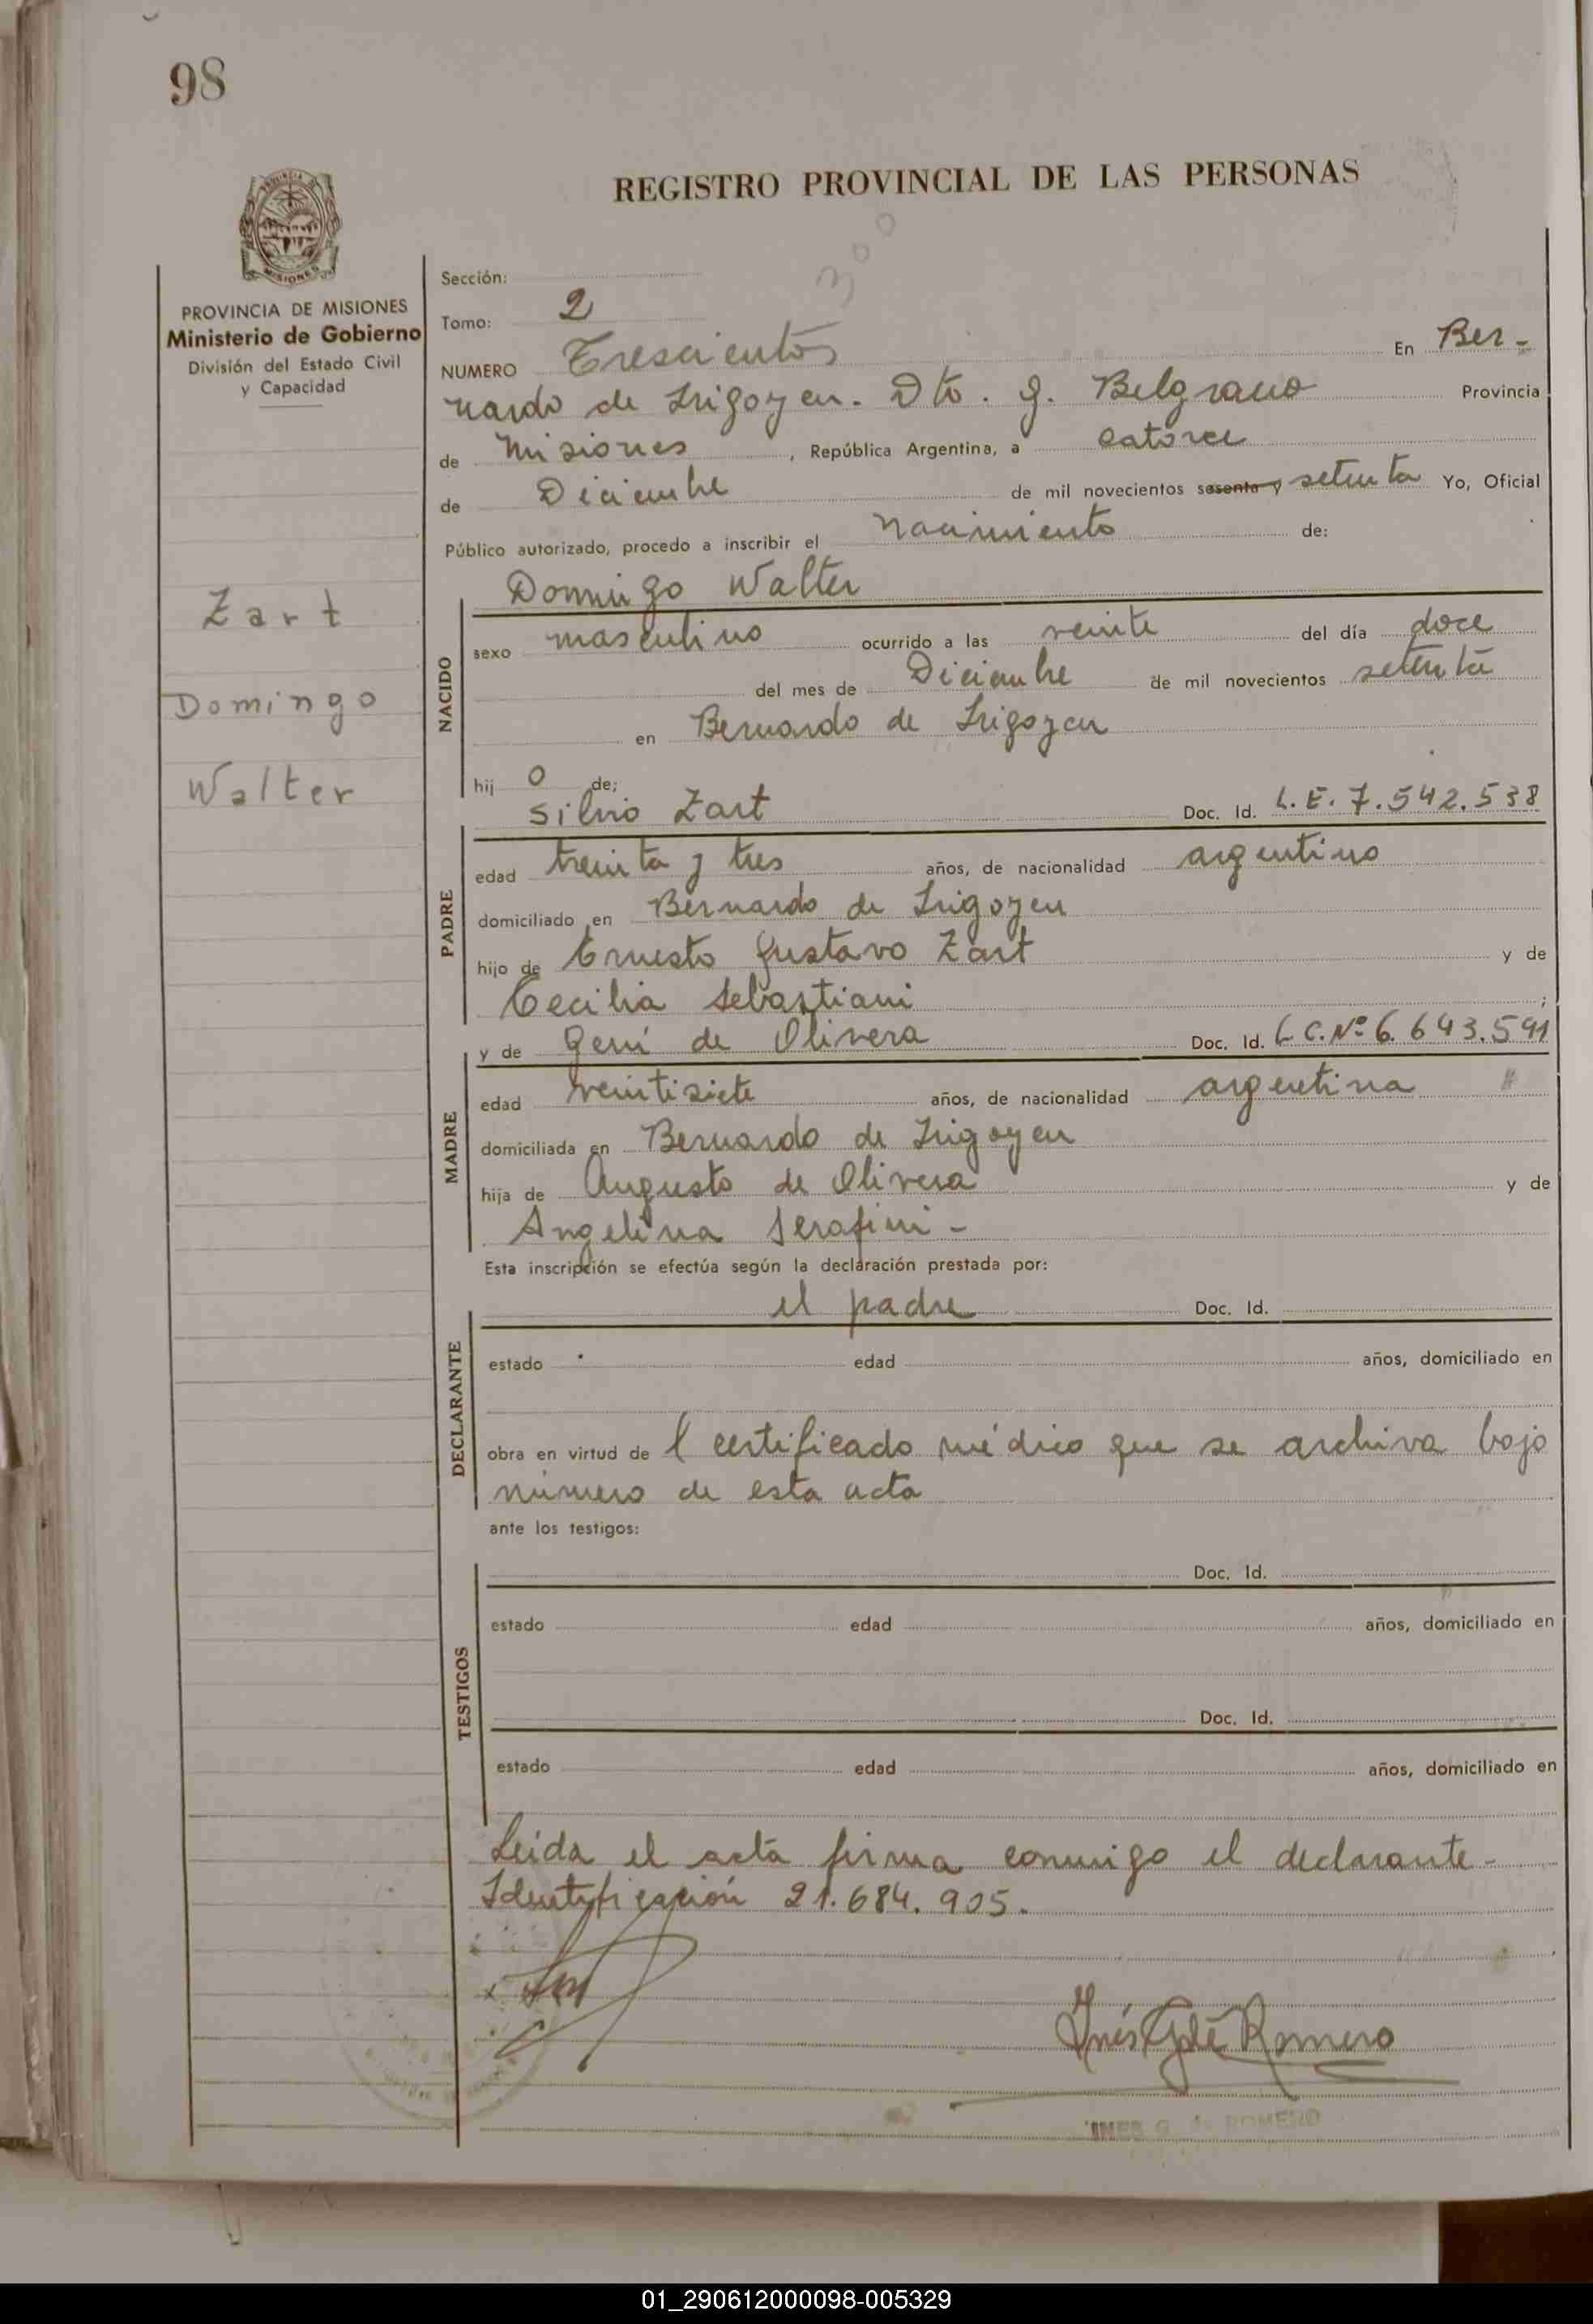 98
REGISTRO PROVINCIAL DE LAS PERSONAS
300
PROVINCIA DE MISIONES
Ministerio de Gobierno
División del Estado Civil
y Capacidad
Zart
Domingo
Walter
Sección:
Tomo: 2
NUMERO Trescientos En Ber-
nardo de Irigoyen. Dto. G. Belgrano Provincia
de Misiones, República Argentina, a catorce
de Diciembre de mil novecientos sesenta y setenta Yo, Oficial
Público autorizado, procedo a inscribir el Nacimiento de:
NACIDO
Domingo Walter
sexo masculino ocurrido a las veinte del día doce
del mes de Diciembre de mil novecientos setenta
en Bernardo de Irigoyen
hij o de;
PADRE
Silvio Zart Doc. Id. L.E. 7.542.538
edad treinta y tres años, de nacionalidad argentino
domiciliado en Bernardo de Irigoyen
hijo de Ernesto Gustavo Zart y de
Cecilia Sebastiani ;
MADRE
y de Gení de Olivera Doc. Id. L.C.Nº 6.643.591
edad veintisiete años, de nacionalidad argentina
domiciliada en Bernardo de Irigoyen
hija de Augusto de Olivera y de
Angelina Serafini -
Esta inscripción se efectúa según la declaración prestada por:
DECLARANTE
el padre Doc. Id.
estado edad años, domiciliado en
obra en virtud de l certificado médico que se archiva bajo
número de esta acta
ante los testigos:
TESTIGOS
Doc. Id.
estado edad años, domiciliado en
Doc. Id.
estado edad años, domiciliado en
Leida el acta firma conmigo el declarante-
Identificación 21.684.905.
Inés Romero
INES G. ROMERO
01_290612000098-005329